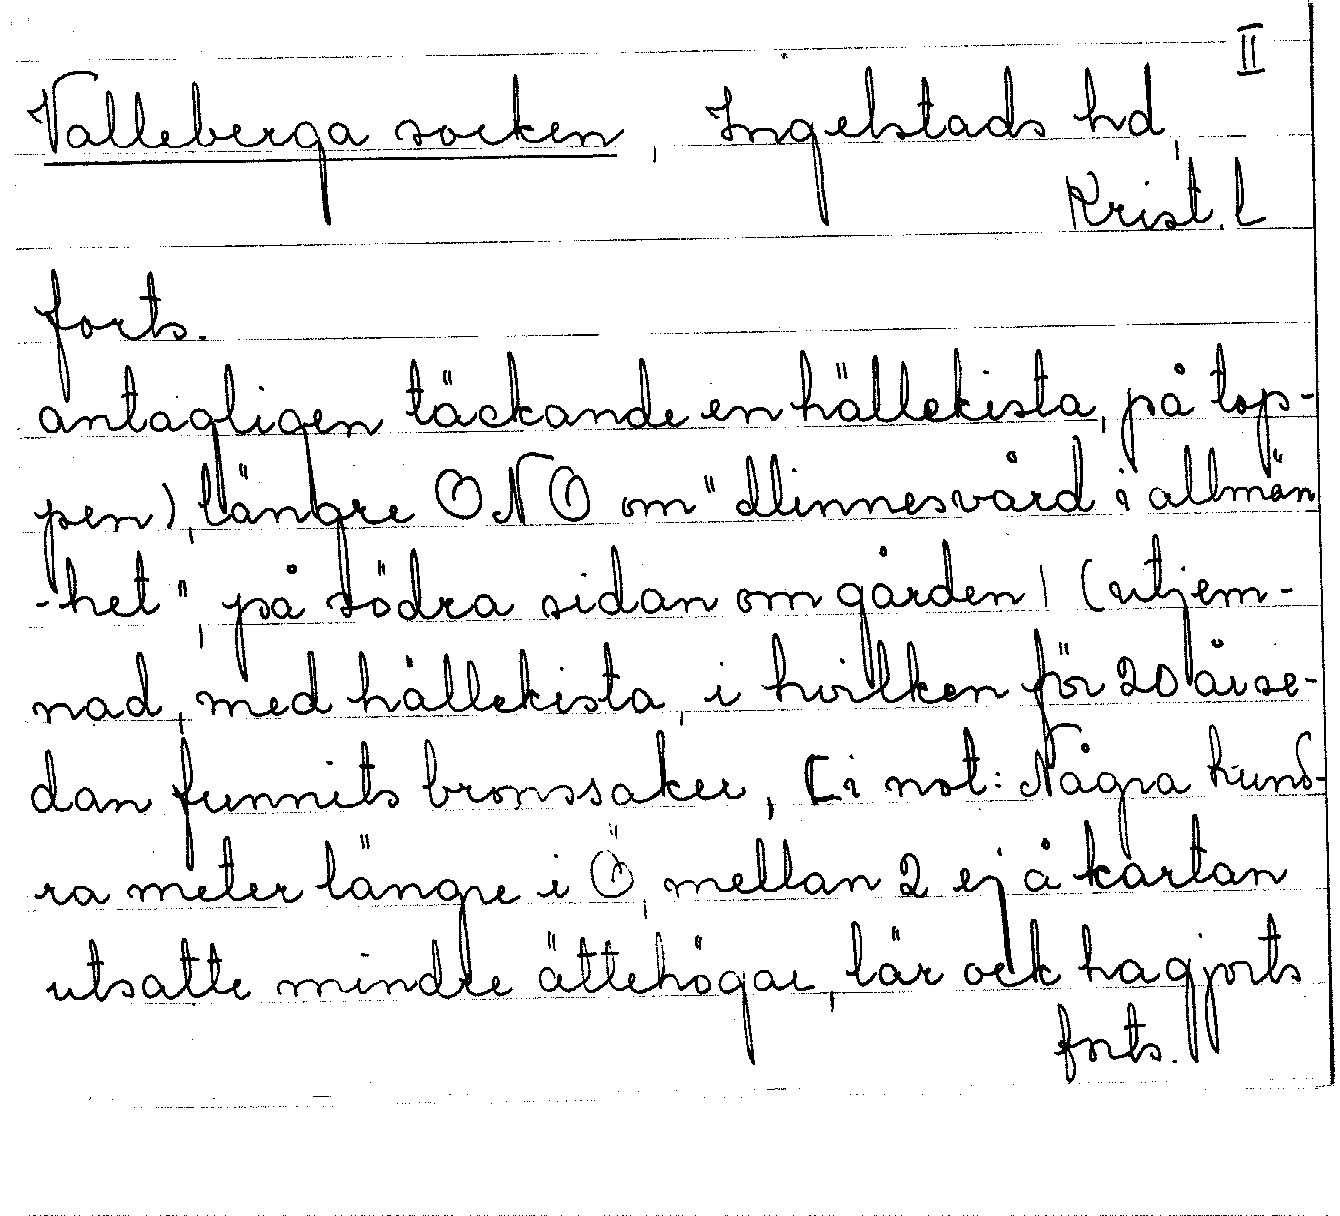 II
Valleberga socken, Ingelstads hd,
Krist. L
forts.
antagligen täckande en hällekista, på top-
pen), längre ONO om "Minnesvård i allmän
-het", på södra sidan om gården) (utjem-
nad, med hällekista, i hvilken för 20 år se-
dan funnits bronssaker, [i not: Några hund-
ra meter längre i Ö, mellan 2 ej å kartan
utsatte mindre ättehögar, lär ock ha gjorts
forts.